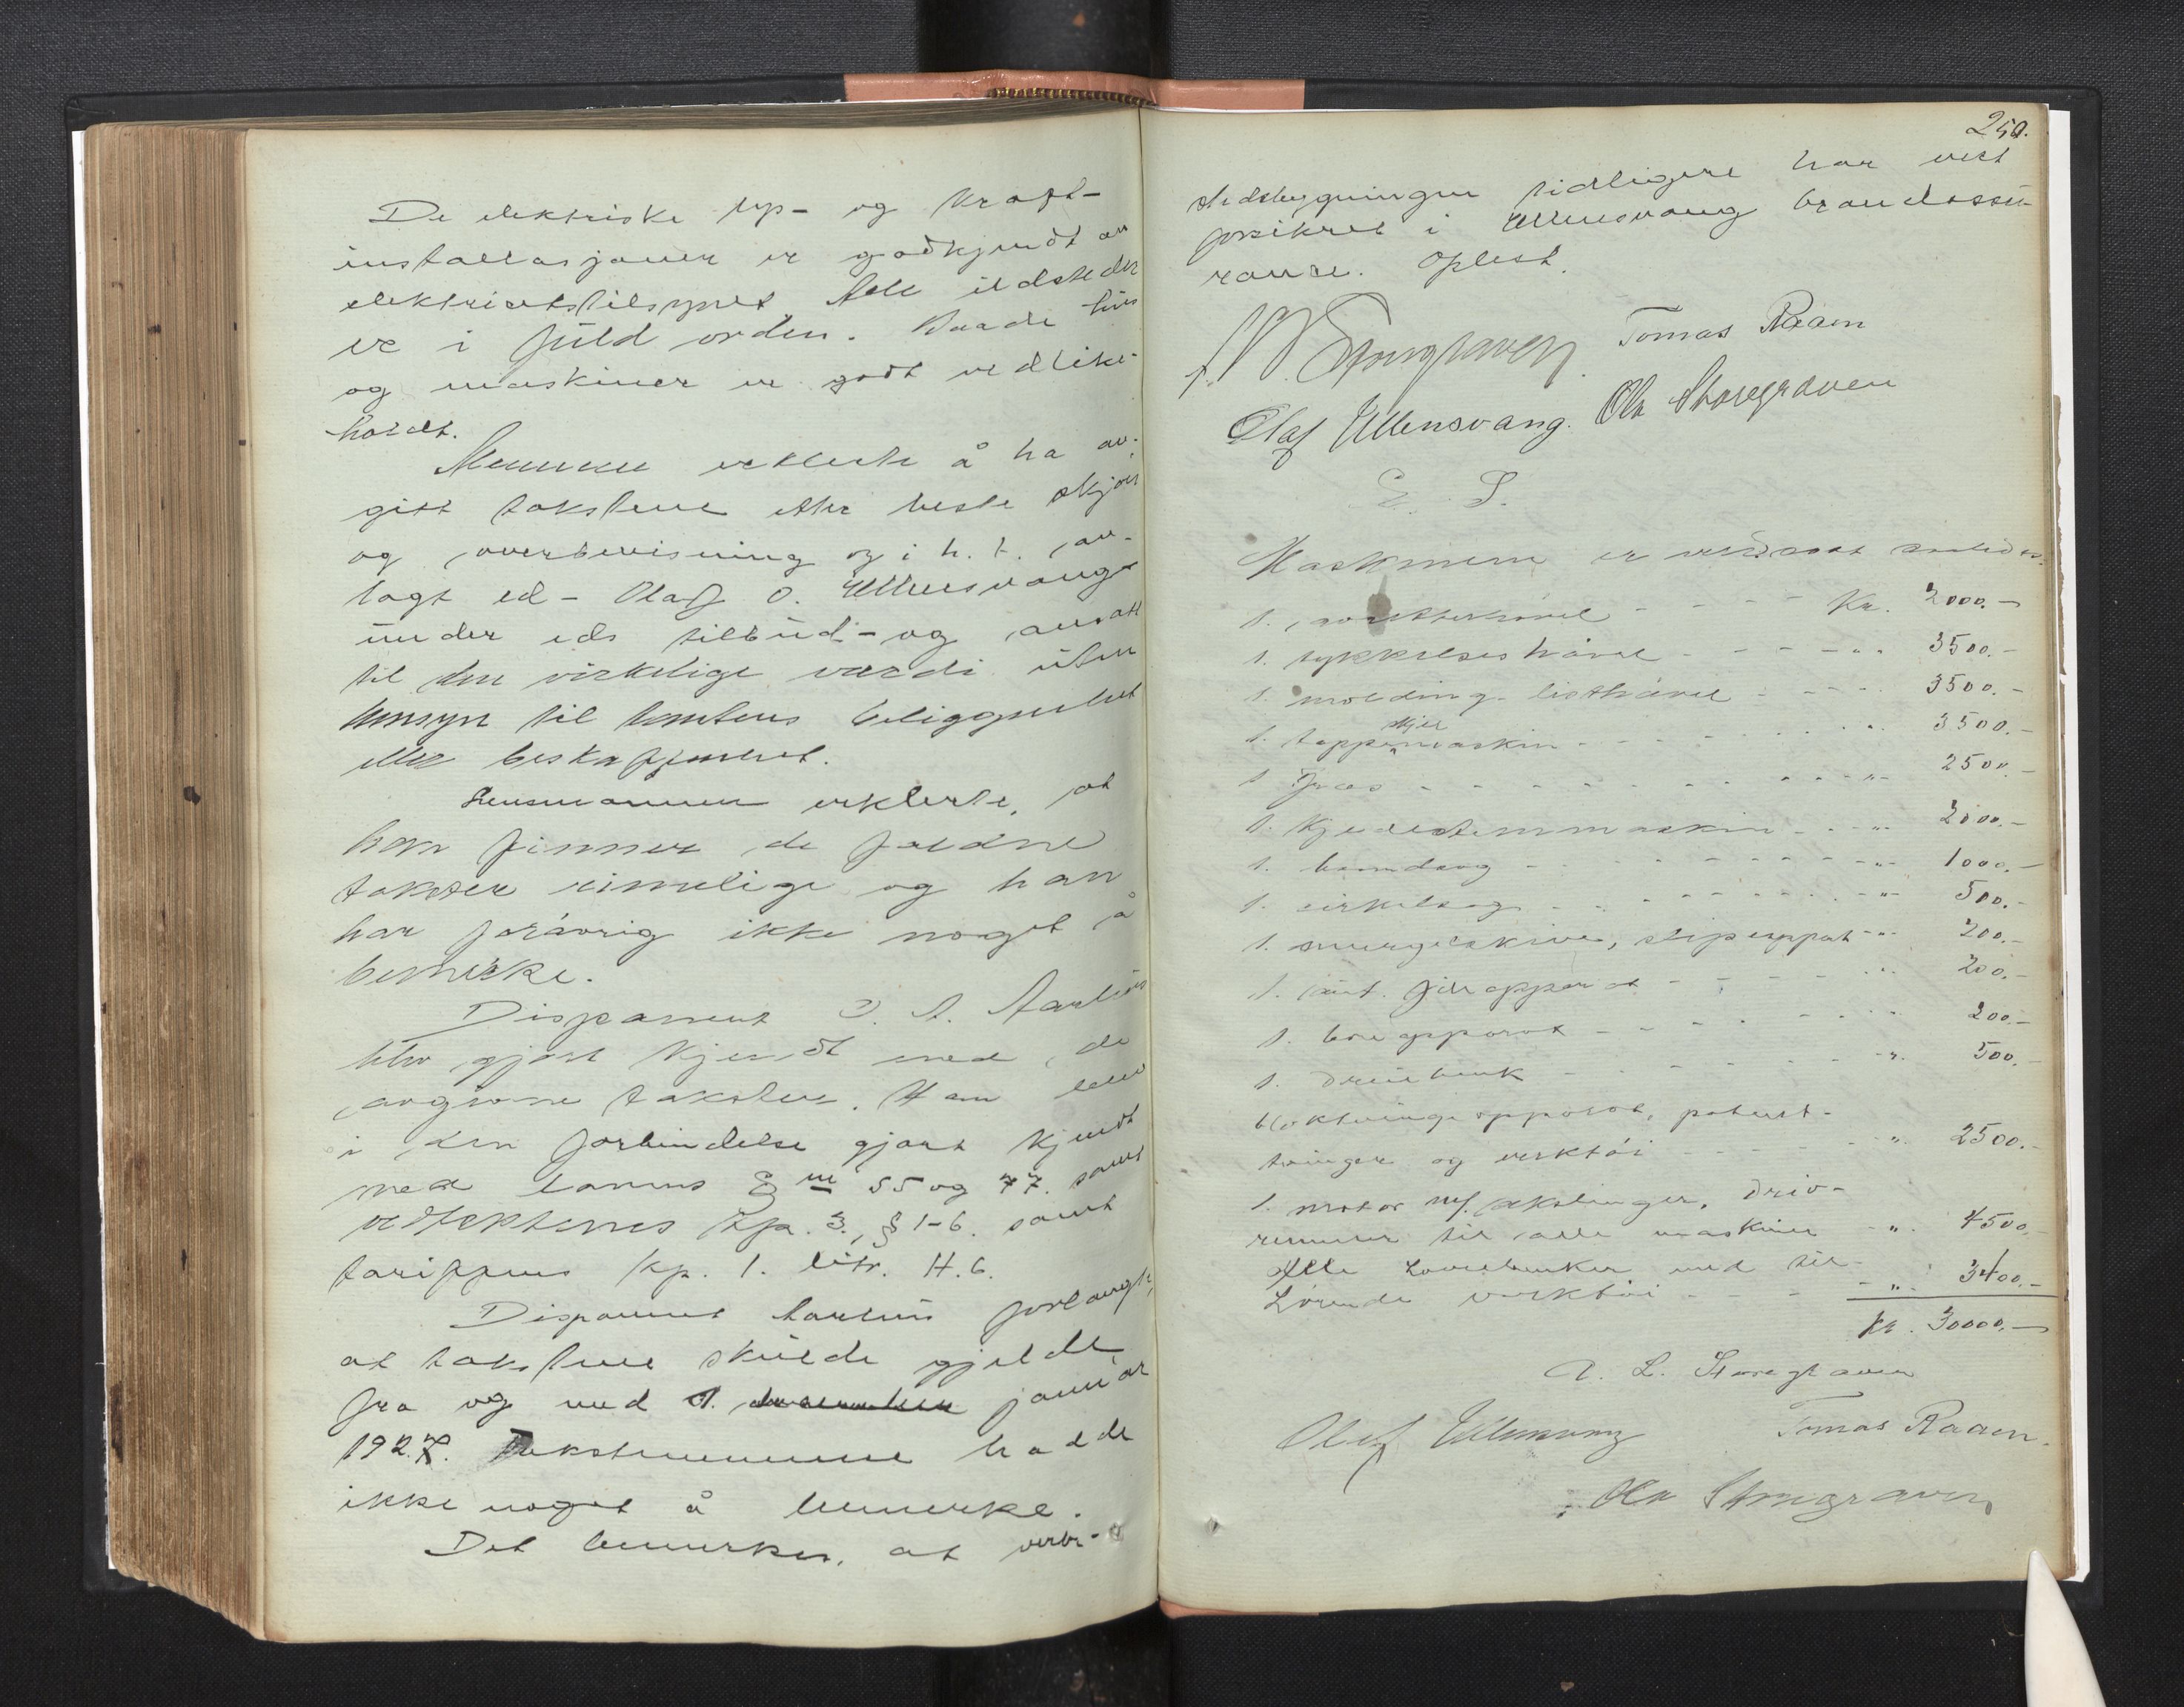 De elektriske lys- og kraft-
installasjoner er godkjendt av
elektricitetstilsynet. Alle ildsteder
er i fuld orden. Baade hus
og maskiner er godt vedlike-
holdt.
Mennene erklerte å ha av-
gitt takstene etter beste skjøn
og overbevisning og i h. t. av-
lagt ed - Olaf O. Ullensvang
under eds tilbud - og ansatt
til den virkelige værdi uten
hensyn til tomtens beliggenhet
eller beskaffenhet.
Lensmannen erklerte, at
han finner de faldne
takster rimelige og han
har forøvrig ikke noget å
bemerke.
Disponent J. A. Aarhus
blev gjort kjendt med de
avgivne takster. Han blev
i den forbindelse gjort kjendt
med lovens §§ 55 og 77. samt
vedtektenes kp. 3, § 1-6. samt
tariffens kp. 1. litr. H.6.
Disponent Aarhus forlangte,
at takstene skulde gjelde
fra og med 1. januar
1927. Takstmennene hadde
ikke noget å bemerke.
Det bemerkes, at verk-
250.
stedsbygningen tidligere har vært
forsikret i Ullensvang brandassu-
ranse. Oplest.
Storegraven. Tomas Raaen
Olaf Ullensvang. Ola Storegraven
E. S.
Maskinene er verdsatt således:
1. avretterhøvel - - - - Kr. 2000.-
1. tykkelseshøvel - - - - " 3500.-
1. molding listhøvel - - - - 3500.-
1. tappskjermaskin - - - - " 3500.-
1 fræs - - - - " 2500.-
1. kjedestemmaskin - - - " 2000.-
1. bandsag - - - - " 1000.-
1. sirkelsag - - - - " 500.-
1. smergelskive, slipeapparat " 200.-
1. aut. fileapparat - - - - " 200.-
1. boreapparat - - - - " 200.-
1. dreiebenk - - - - " 500.-
blokktvingeapparat, patent-
tvinger og verktøi - - - " 2500.-
1. motor m/ akslinger, driv-
remmer til alle maskiner - " 4500.-
Alle høvelbenker med til-
hørende verktøi - - - " 3400.-
Kr. 30000.-
A. L. Storegraven
Olaf Ullensvang Tomas Raaen.
Ola Storegraven